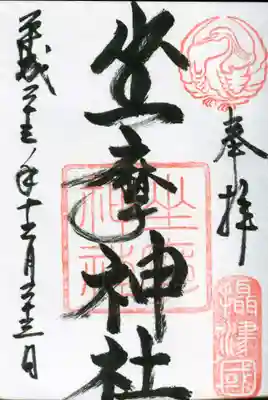 奉拝
攝津國
坐摩神社
坐摩神社
平成二十三年十二月二十三日